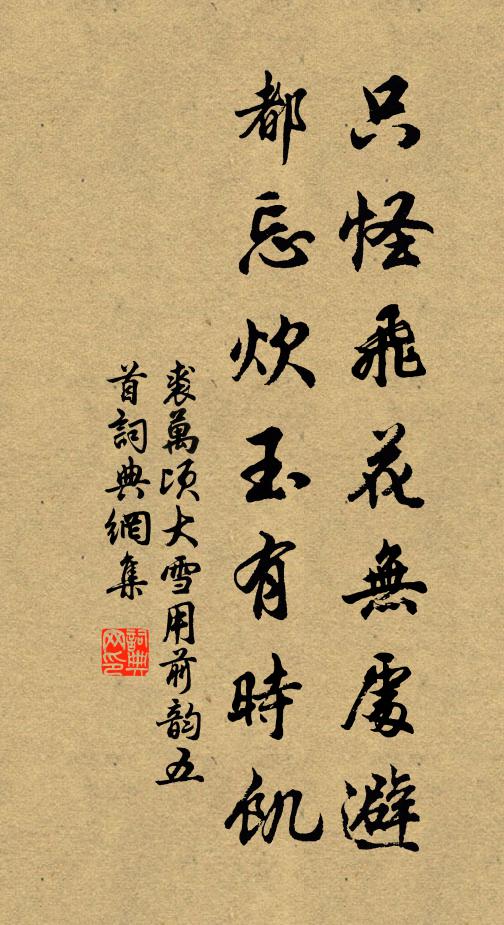 只怪飛花無處避
都忘炊玉有時飢
裘萬頃大雪用前韵五
首詞典網集
詞典
网印